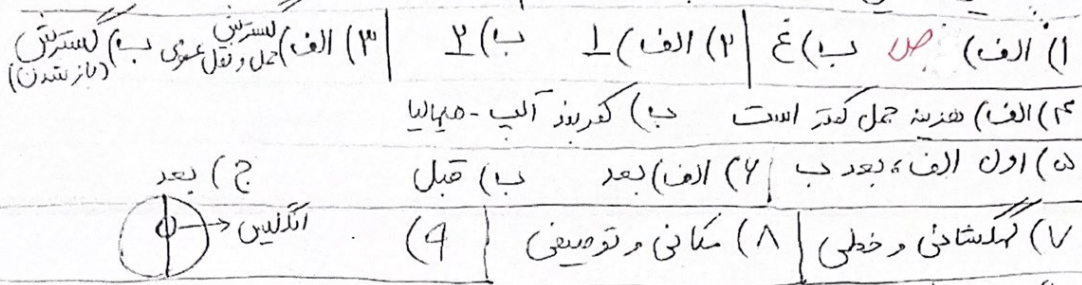 ۱) الف) ص ب) غ | ۲) الف) 1 ب) ۲ | ۳) الف) گسترش حمل و نقل عمومی ب) گسترش (باز شدن)
۴) الف) هزینه حمل کمتر است ب) کمربند آلپ - هیمالیا
۵) اول الف، بعد ب | ۶) الف) بعد ب) قبل ج) بعد
۷) کهکشانی و خطی | ۸) مکانی و توصیفی | ۹) انگلیس